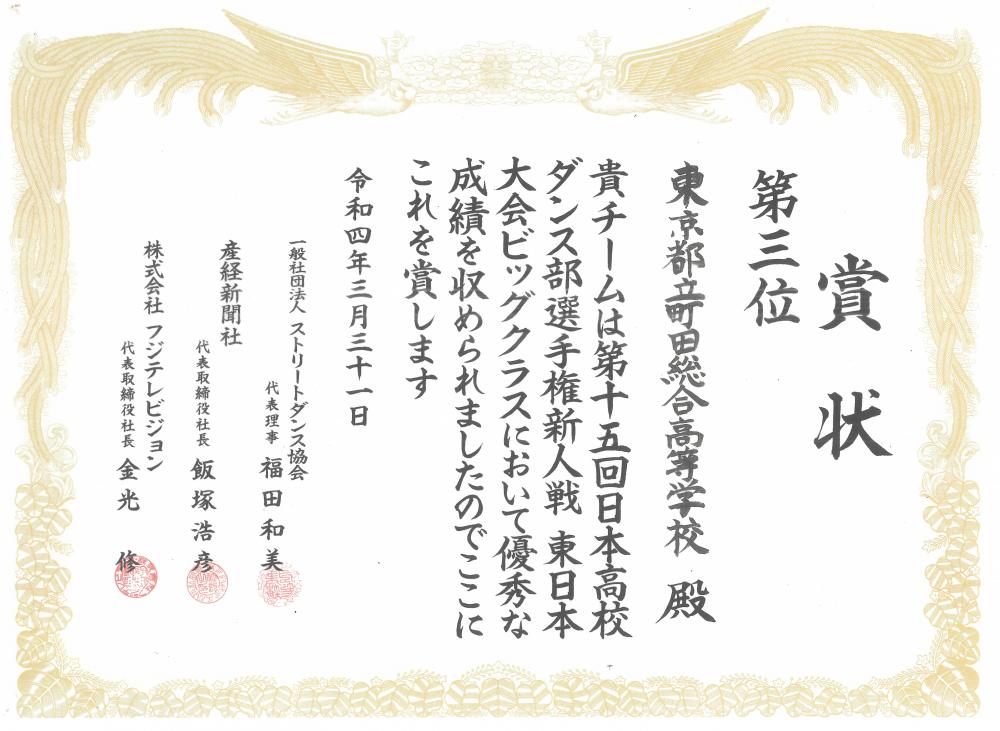 賞状
第三位
東京都立町田総合高等学校 殿
貴チームは第十五回日本高校
ダンス部選手権新人戦 東日本
大会ビッグクラスにおいて優秀な
成績を収められましたのでここに
これを賞します
令和四年三月三十一日
一般社団法人 ストリートダンス協会
代表理事 福田和美
産経新聞社
代表取締役社長 飯塚浩彦
株式会社 フジテレビジョン
代表取締役社長 金光 修